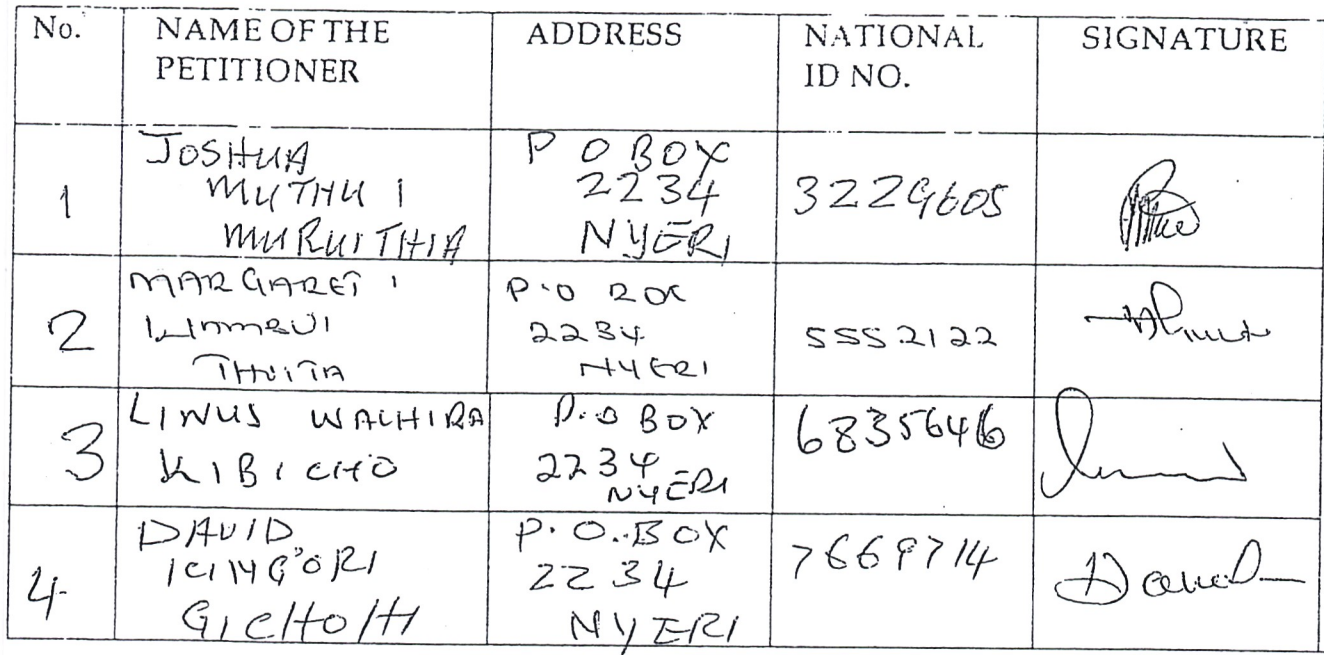 No. NAME OF THE PETITIONER ADDRESS NATIONAL ID NO. SIGNATURE
1 JOSHUA MUTHUI MURUITHIA P O BOX 2234 NYERI 3229605
2 MARGARET WAMBUI THUITA P.O BOX 2234 NYERI 5552122
3 LINUS WACHIRA KIBICHO P.O BOX 2234 NYERI 6835646
4 DAVID KING'ORI GICHOHI P.O. BOX 2234 NYERI 7669714 David